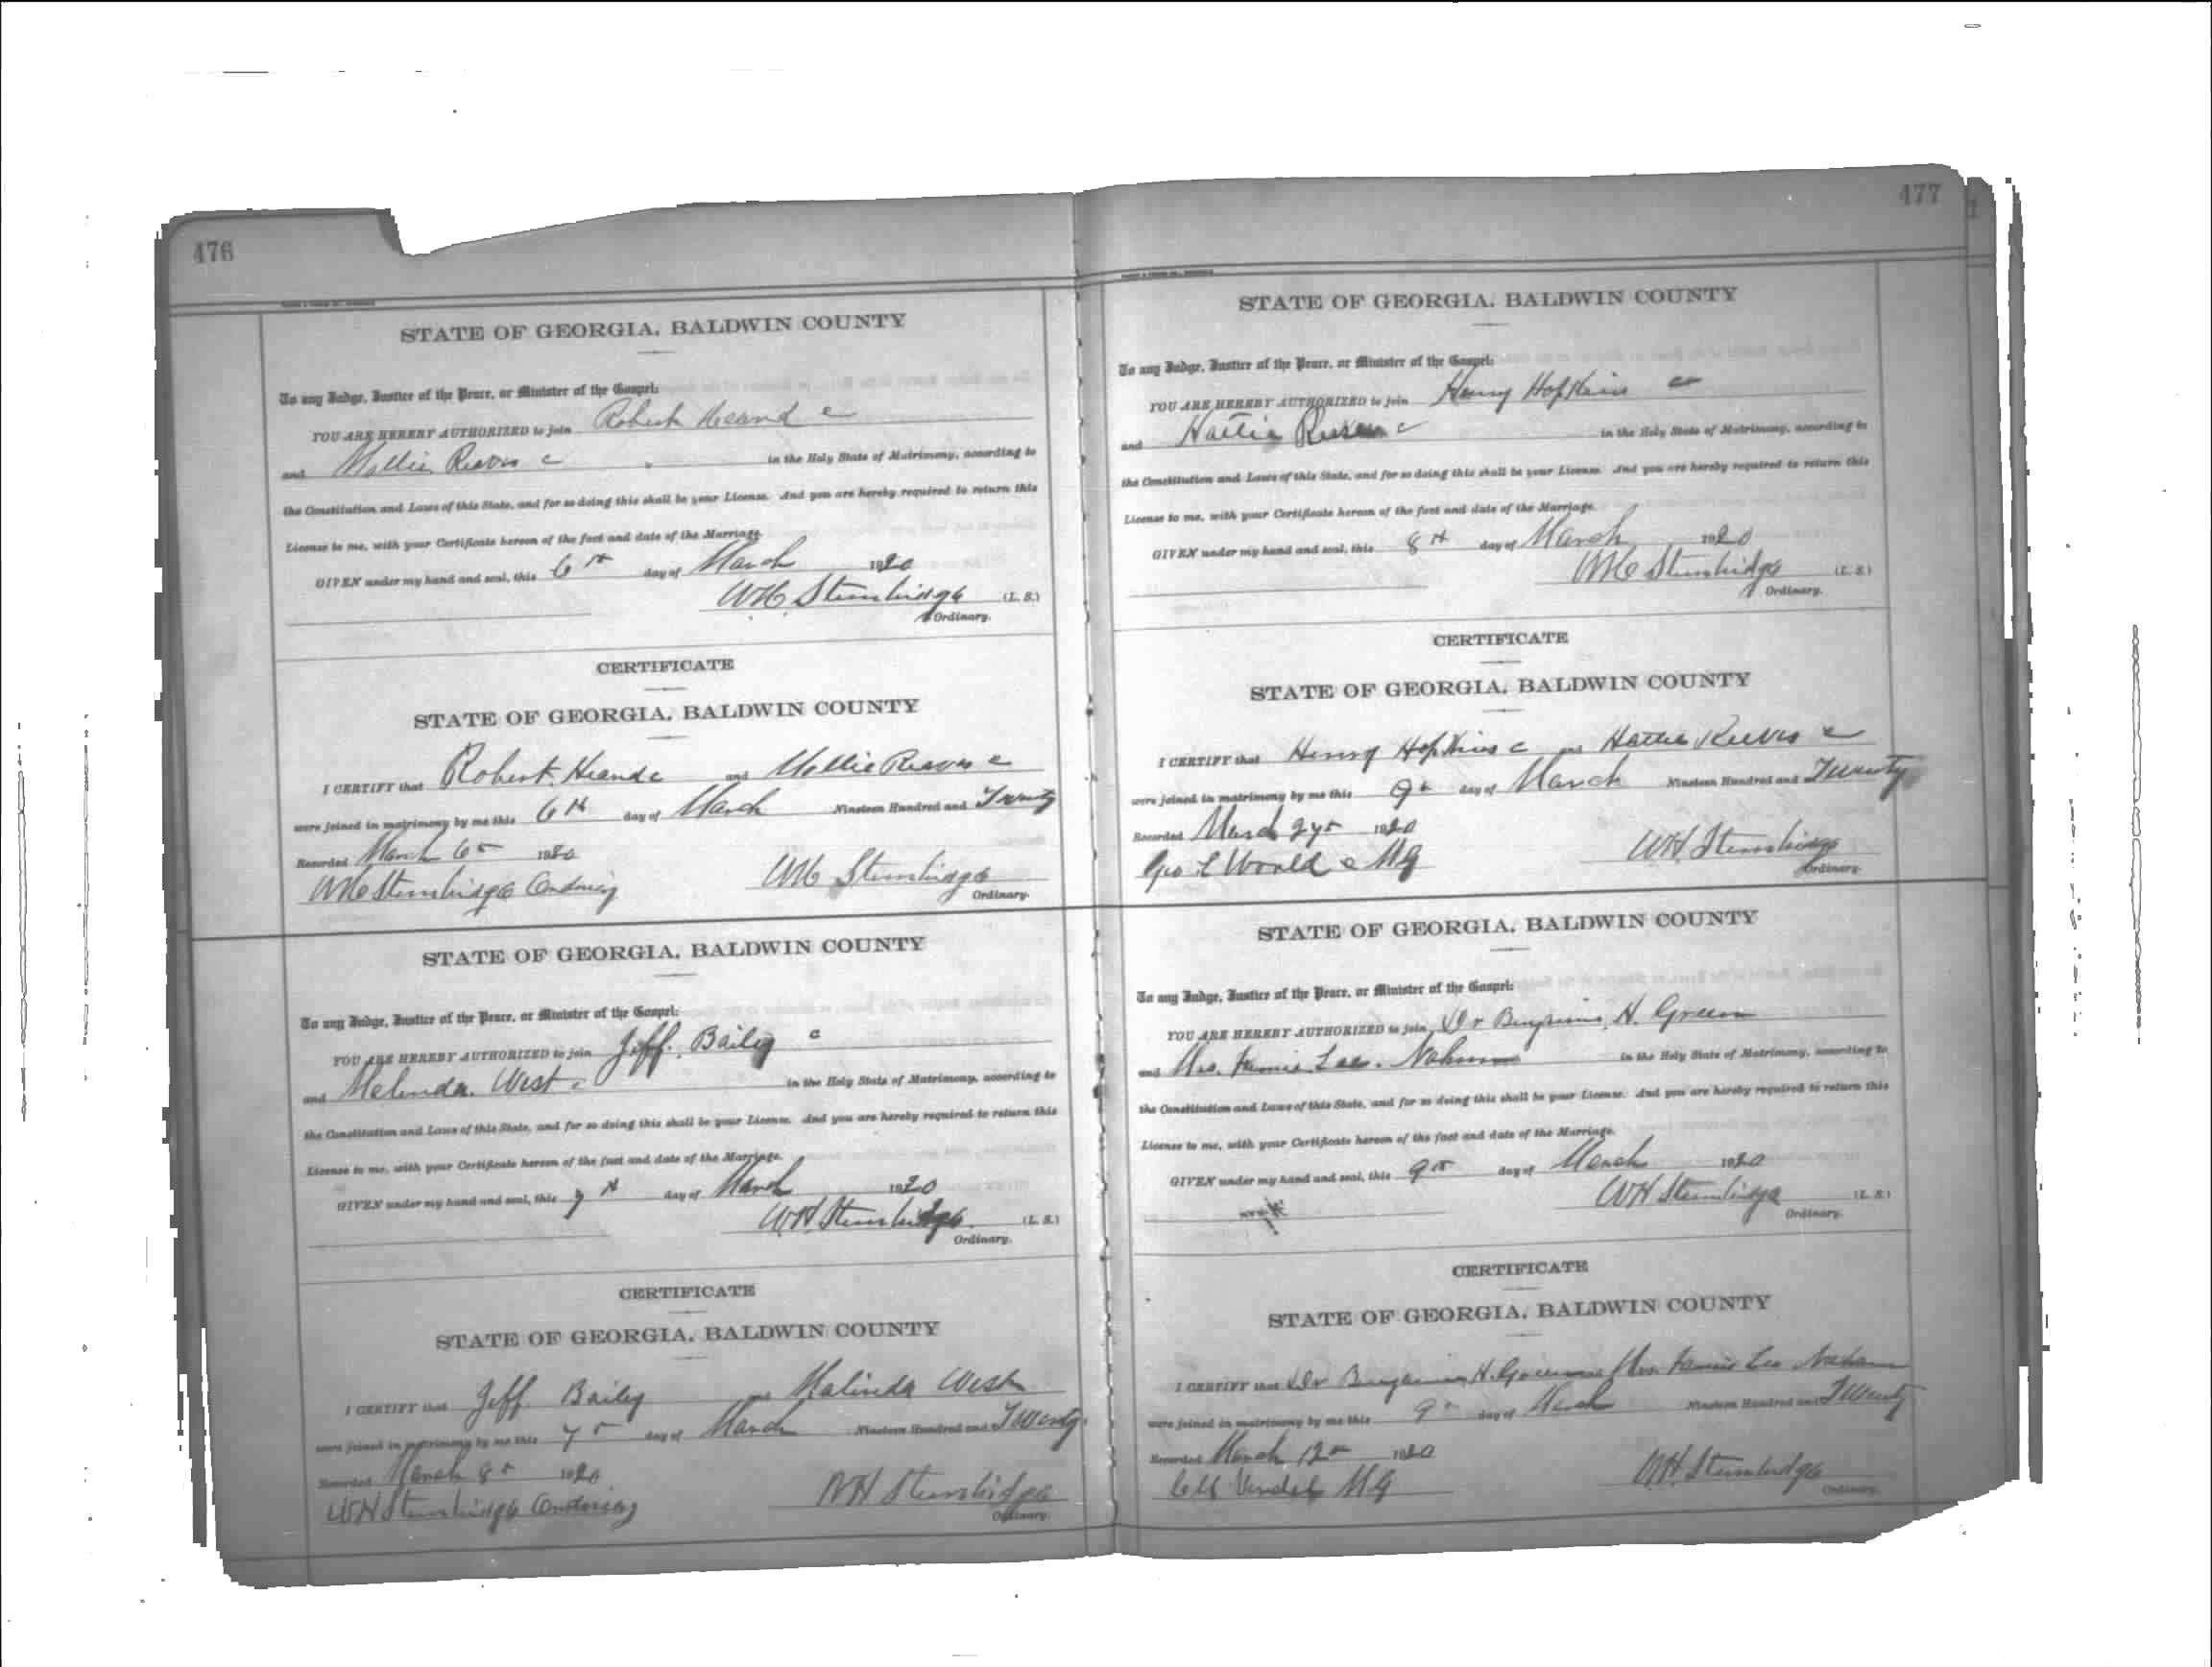 476
STATE OF GEORGIA, BALDWIN COUNTY
To any Judge, Justice of the Peace, or Minister of the Gospel:
YOU ARE HEREBY AUTHORIZED to join Robert c
and Mollie Reaves c in the Holy State of Matrimony, according to
the Constitution and Laws of this State, and for so doing this shall be your License. And you are hereby required to return this
License to me, with your Certificate hereon of the fact and date of the Marriage.
GIVEN under my hand and seal, this 6th day of March 1920
WH Stembridge (L. S.)
Ordinary.
CERTIFICATE
STATE OF GEORGIA, BALDWIN COUNTY
I CERTIFY that Robert and Mollie Reaves c
were joined in matrimony by me this 6th day of March Nineteen Hundred and Twenty
Recorded March 6th 1920
WH Stembridge WH Stembridge
Ordinary.
STATE OF GEORGIA, BALDWIN COUNTY
To any Judge, Justice of the Peace, or Minister of the Gospel:
YOU ARE HEREBY AUTHORIZED to join Jeff. Bailey c
and Melinda West c in the Holy State of Matrimony, according to
the Constitution and Laws of this State, and for so doing this shall be your License. And you are hereby required to return this
License to me, with your Certificate hereon of the fact and date of the Marriage.
GIVEN under my hand and seal, this 7th day of March 1920
WH Stembridge (L. S.)
Ordinary.
CERTIFICATE
STATE OF GEORGIA, BALDWIN COUNTY
I CERTIFY that Jeff. Bailey and Malinda West
were joined in matrimony by me this 7th day of March Nineteen Hundred and Twenty
Recorded March 8th 1920
WH Stembridge WH Stembridge
Ordinary.
477
STATE OF GEORGIA, BALDWIN COUNTY
To any Judge, Justice of the Peace, or Minister of the Gospel:
YOU ARE HEREBY AUTHORIZED to join Henry Hopkins c
and Hattie c in the Holy State of Matrimony, according to
the Constitution and Laws of this State, and for so doing this shall be your License. And you are hereby required to return this
License to me, with your Certificate hereon of the fact and date of the Marriage.
GIVEN under my hand and seal, this 8th day of March 1920
WH Stembridge (L. S.)
Ordinary.
CERTIFICATE
STATE OF GEORGIA, BALDWIN COUNTY
I CERTIFY that Henry Hopkins c and Hattie Reeves c
were joined in matrimony by me this 9th day of March Nineteen Hundred and Twenty
Recorded March 1920
Geo L c MG WH Stembridge
Ordinary.
STATE OF GEORGIA, BALDWIN COUNTY
To any Judge, Justice of the Peace, or Minister of the Gospel:
YOU ARE HEREBY AUTHORIZED to join Dr Benjamin H. Green
and Mrs. Lee in the Holy State of Matrimony, according to
the Constitution and Laws of this State, and for so doing this shall be your License. And you are hereby required to return this
License to me, with your Certificate hereon of the fact and date of the Marriage.
GIVEN under my hand and seal, this 9th day of March 1920
WH Stembridge (L. S.)
Ordinary.
CERTIFICATE
STATE OF GEORGIA, BALDWIN COUNTY
I CERTIFY that Dr Benjamin H. Green Mrs. Lee
were joined in matrimony by me this 9th day of March Nineteen Hundred and Twenty
Recorded March 12th 1920
MG WH Stembridge
Ordinary.